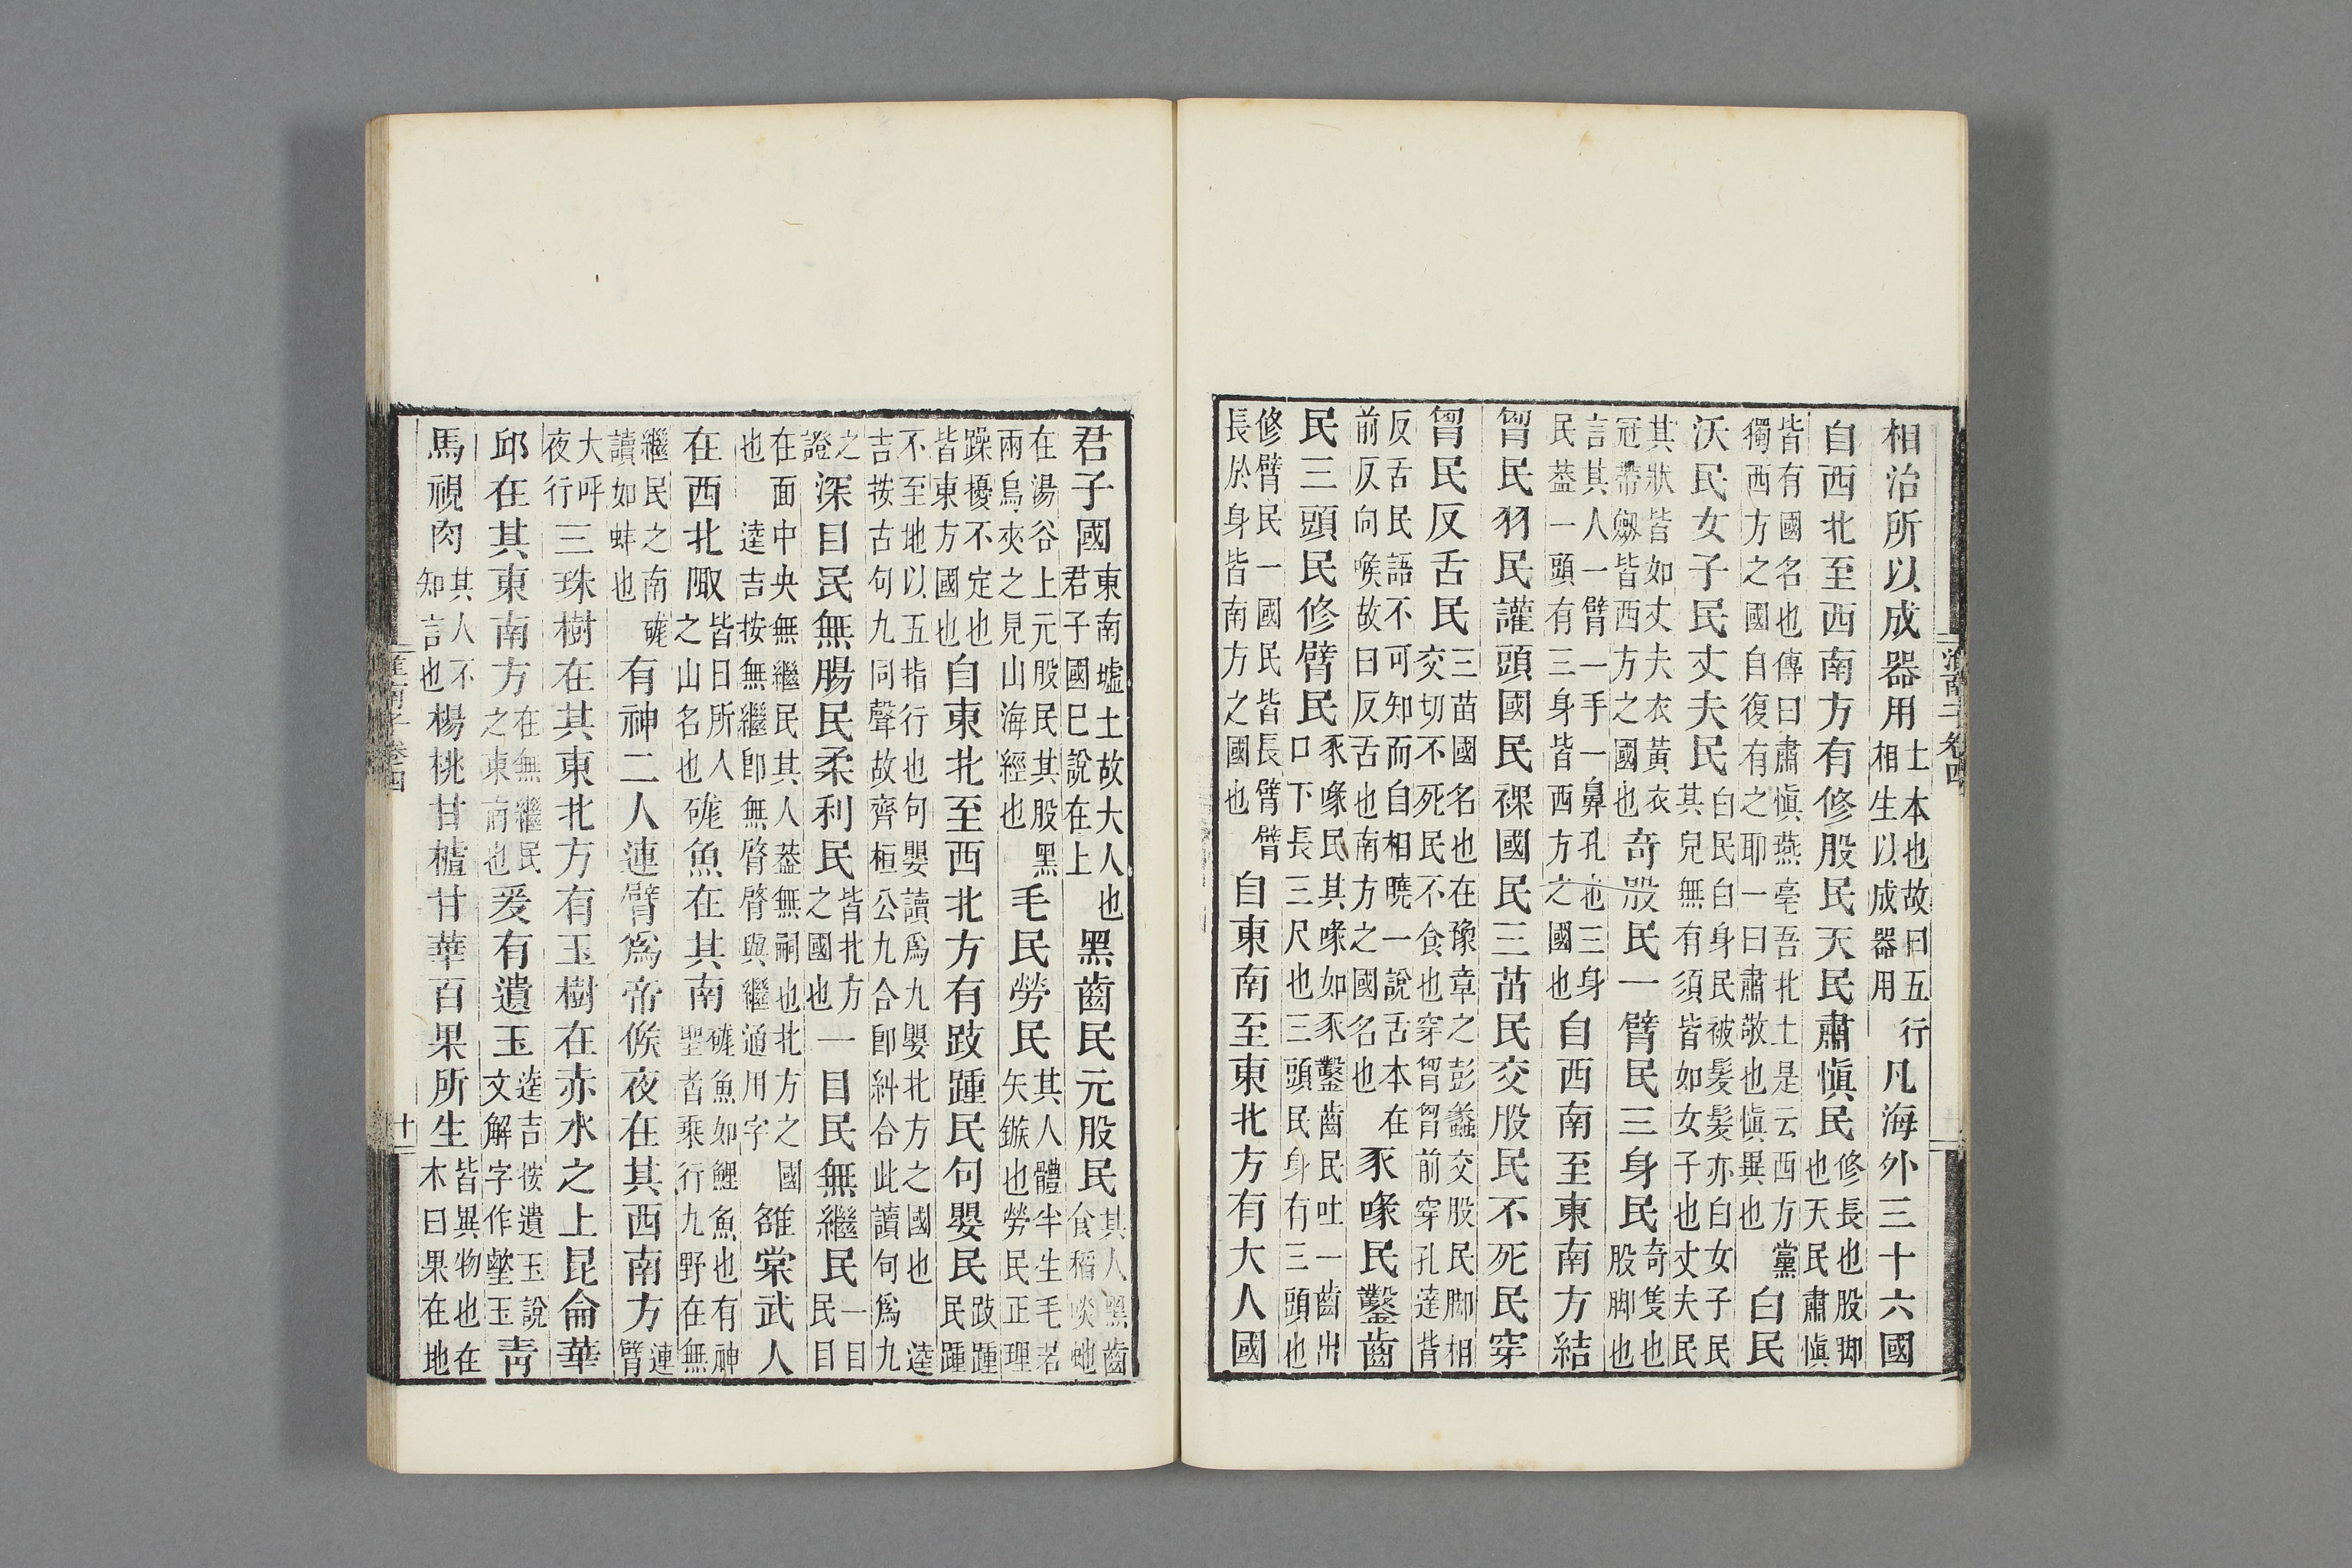 相治所以成器用土本也故曰五行相生以成器用凡海外三十六國
自西北至西南方有修股民天民肅愼民修長也股脚也天民肅愼
皆有國名也傳曰肅愼燕亳吾北土是云西方黨獨西方之國自復有之耶一曰肅敬也愼異也白民
沃民女子民丈夫民白民白身民被髮髮亦白女子民其皃無有須皆如女子也丈夫民
其狀皆如丈夫衣黃衣冠帶劔皆西方之國也奇股民一臂民三身民奇隻也股脚也
言其人一臂一手一鼻孔也三身民葢一頭有三身皆西方之國也自西南至東南方結
胷民羽民讙頭國民裸國民三苗民交股民不死民穿
胷民反舌民三苗國名也在豫章之彭蠡交股民脚相交切不死民不食也穿胷胷前穿孔達背
反舌民語不可知而自相曉一說舌本在前反向喉故曰反舌也南方之國名也豕喙民鑿齒
民三頭民修臂民豕喙民其喙如豕鑿齒民吐一齒出口下長三尺也三頭民身有三頭也
修臂民一國民皆長臂臂長於身皆南方之國也自東南至東北方有大人國
君子國東南墟土故大人也君子國巳說在上黑齒民元股民其人黑齒食稻啖虵
在湯谷上元股民其股黑兩烏夾之見山海經也毛民勞民其人體半生毛若矢鏃也勞民正理
躁擾不定也皆東方國也自東北至西北方有跂踵民句嬰民跂踵民踵
不至地以五指行也句嬰讀爲九嬰北方之國也逵吉按古句九同聲故齊桓公九合卽糾合此讀句爲九
之證深目民無腸民柔利民皆北方之國也一目民無繼民一目民目
在面中央無繼民其人葢無嗣也北方之國也逵吉按無繼卽無臋臋與繼通用字雒棠武人
在西北陬皆日所入之山名也硥魚在其南硥魚如鯉魚也有神聖者乘行九野在無
繼民之南硥讀如蚌也有神二人連臂爲帝候夜在其西南方連臂
大呼夜行三珠樹在其東北方有玉樹在赤水之上昆侖華
邱在其東南方在無繼民之東南也爰有遺玉逵吉按遺玉說文解字作墼玉靑
馬視肉其人不知言也楊桃甘樝甘華百果所生皆異物也在木曰果在地
淮南子卷四
十